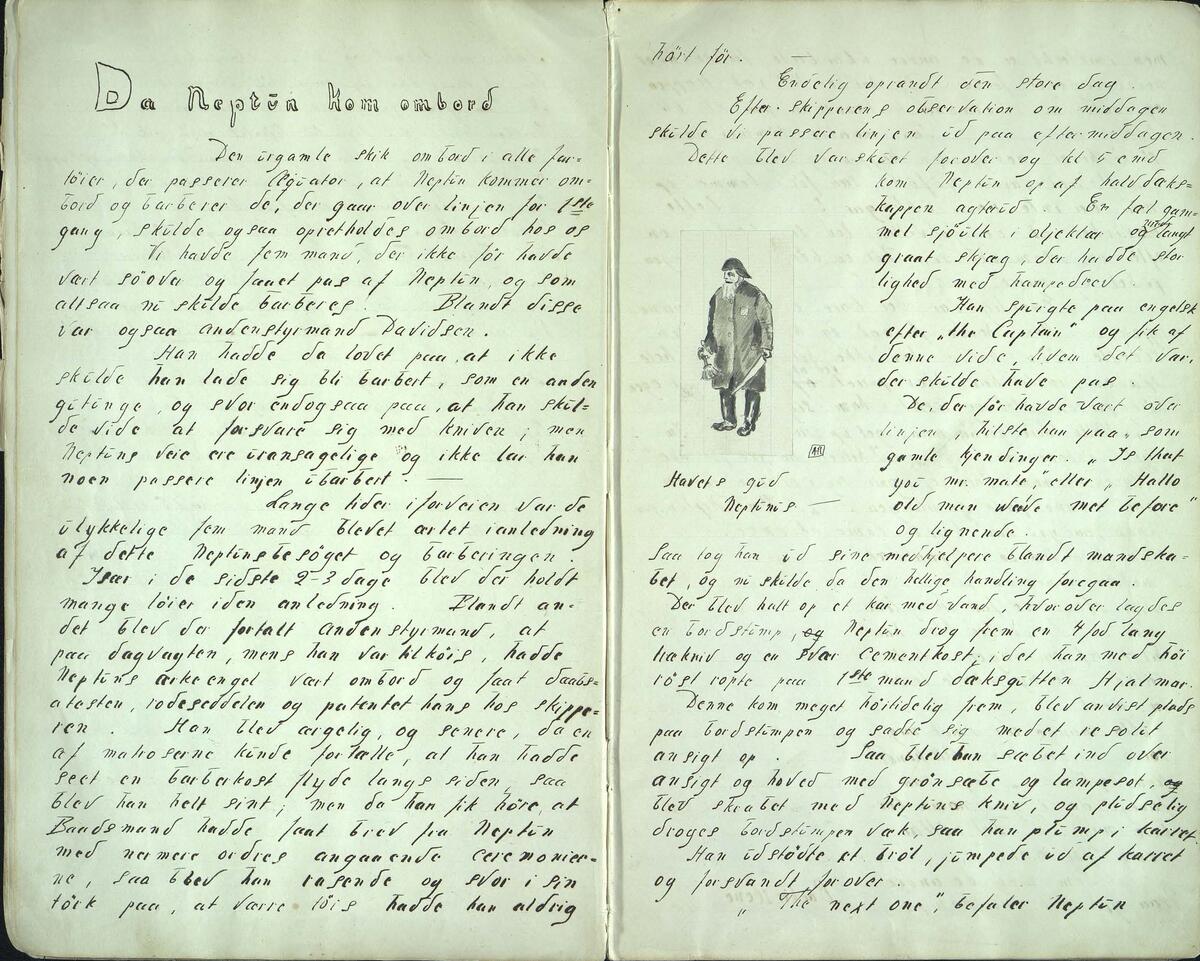 Da Neptūn kom ombord
Den ūrgamle skik ombord i alle far-
töier, der passerer Æqūator, at Neptūn kommer om-
bord og barberer de, der gaar over linjen for 1ste
gang, skūlde ogsaa opretholdes ombord hos os
Vi havde fem mand, der ikke för havde
vært söover og faaet pas af Neptūn, og som
altsaa nū skūlde barberes. Blandt disse
var ogsaa andenstyrmand Davidsen.
Han hadde da lovet paa, at ikke
skūlde han lade sig bli barbert, som en anden
gūtūnge, og svor endogsaa paa, at han skūl-
de vide at forsvare sig med kniven; men
Neptūns veie ere ūransagelige og ikke lar han
noen passere linjen ūbarbert. —
Lange tider iforveien var de
ūlykkelige fem mand blevet ærtet ianledning
af dette Neptūnsbesöget og barberingen.
Især i de sidste 2-3 dage blev der holdt
mange löier iden anledning. Blandt an-
det blev der fortalt andenstyrmand, at
paa dagvagten, mens han var tilköis, hadde
Neptūns ærkeengel vært ombord og faat daabs-
atesten, rodeseddelen og patentet hans hos skippe-
ren. Han blev ærgelig, og senere, da en
af matroserne kūnde fortælle, at han hadde
seet en barberkost flyde langs siden, saa
blev han helt sint; men da han fik höre, at
Baadsmand hadde faat brev fra Neptūn
med nermere ordres angaaende ceremonier-
ne, saa blev han rasende og svor i sin
törk paa, at værre töis hadde han aldrig
hört för. —
Endelig oprandt den store dag.
Efter skipperens observation om middagen
skūlde vi passere linjen ūd paa eftermiddagen.
Dette blev varskūet forover og kl 5 emd
kom Neptūn op af halddæks-
kappen agterūd. En fæl gam-
mel sjöūlk i oljeklær og langt
graat skjæg, der hadde stor
lighed med hampedrev.
Han spūrgte paa engelsk
efter „the Captain" og fik af
denne vide, hvem det var,
der skūlde have pas.
De, der för havde vært over
linjen, hilste han paa, som
gamle kjendinger. „Is that
yoū mr. mate", eller „Hallo
old man we've met before"
og lignende.
Havets gūd
Neptūnūs —
AR
Saa tog han ūd sine medhjelpere blandt mandska-
bet, og nū skūlde da den hellige handling foregaa.
Der blev halt op et kar med vand, hvorover lagdes
en bordstūmp, og Neptūn drog frem en 4 fod lang
trækniv og en svær cementkost, idet han med höi
röst ropte paa 1ste mand dæksgūtten Hjalmar.
Denne kom meget höitidelig frem, blev anvist plads
paa bordstūmpen og sadte sig med et resolūt
ansigt op. Saa blev han sæbet ind over
ansigt og hoved med grönsæbe og lampesot, og
blev skrabet med Neptūns kniv, og plūdselig
droges bordstūmpen væk, saa han plūmp i karret.
Han ūdstödte et bröl, jūmpede ūd af karret
og forsvandt forover
„The next one", befaler Neptūn